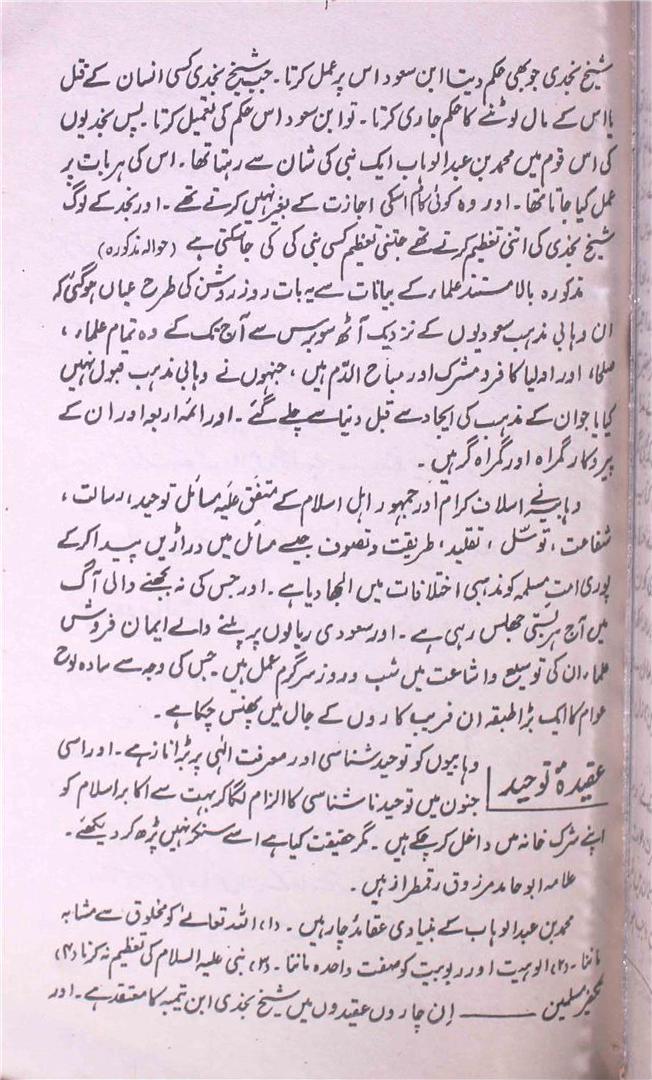 شیخ نجدی جو بھی حکم دیتا ابن سعود اس پر عمل کرتا ۔ جب شیخ نجدی کسی انسان کے قتل
یا اس کے مال لوٹنے کا حکم جاری کرتا ۔ تو ابن سعود اس حکم کی تعمیل کرتا ۔ پس نجدیوں
کی اس قوم میں محمد بن عبد الوہاب ایک نبی کی شان سے رہتا تھا ۔ اس کی ہر بات پر
عمل کیا جاتا تھا ۔ اور وہ کوئی کام اسکی اجازت کے بغیر نہیں کرتے تھے ۔ اور نجد کے لوگ
شیخ نجدی کی اتنی تعظیم کرتے تھے جتنی تعظیم کسی نبی کی کی جا سکتی ہے (حوالہ مذکورہ)
مذکورہ بالا مستند علماء کے بیانات سے یہ بات روز روشن کی طرح عیاں ہو گئی کہ
ان وہابی مذہب سعودیوں کے نزدیک آٹھ سو برس سے آج تک کے وہ تمام علماء ،
صلحاء اور اولیا کافر و مشرک اور مباح الدّم ہیں ، جنہوں نے وہابی مذہب قبول نہیں
کیا یا جو ان کے مذہب کی ایجاد سے قبل دنیا سے چلے گئے ۔ اور ائمہ اربعہ اور ان کے
پیروکار گمراہ اور گمراہ گر ہیں ۔
وہابیہ نے اسلاف کرام اور جمہور اہل اسلام کے متفق علیہ مسائل توحید ، رسالت ،
شفاعت ، توسّل ، تقلید ، طریقت و تصوف جیسے مسائل میں دراڑیں پیدا کر کے
پوری امت مسلمہ کو مذہبی اختلافات میں الجھا دیا ہے ۔ اور جس کی نہ بجھنے والی آگ
میں آج ہر بستی جھلس رہی ہے ۔ اور سعودی ریالوں پر پلنے والے ایمان فروش
علماء ان کی توسیع و اشاعت میں شب و روز سرگرم عمل ہیں ۔ جس کی وجہ سے سادہ لوح
عوام کا ایک بڑا طبقہ ان فریب کاروں کے جال میں پھنس چکا ہے ۔
عقیدۂ توحید
وہابیوں کو توحید شناسی اور معرفت الٰہی پر بڑا ناز ہے ۔ اور اسی
جنون میں توحید نا شناسی کا الزام لگا کر بہت سے اکابر اسلام کو
اپنے شرک خانہ میں داخل کر چکے ہیں ۔ مگر حقیقت کیا ہے اسے سنکر نہیں پڑھ کر دیکھئے ۔
علامہ ابو حامد مرزوق رقمطراز ہیں ۔
محمد بن عبد الوہاب کے بنیادی عقائد چار ہیں ۔ (۱) اللہ تعالےٰ کو مخلوق سے مشابہ
ماننا ۔ (۲) الوہیت اور ربوبیت کو صفت واحدہ ماننا ۔ (۳) نبی علیہ السلام کی تعظیم نہ کرنا (۴)
تکفیر مسلمین ــــــــــ اِن چاروں عقیدوں میں شیخ نجدی ابن تیمیہ کا معتقد ہے ۔ اور